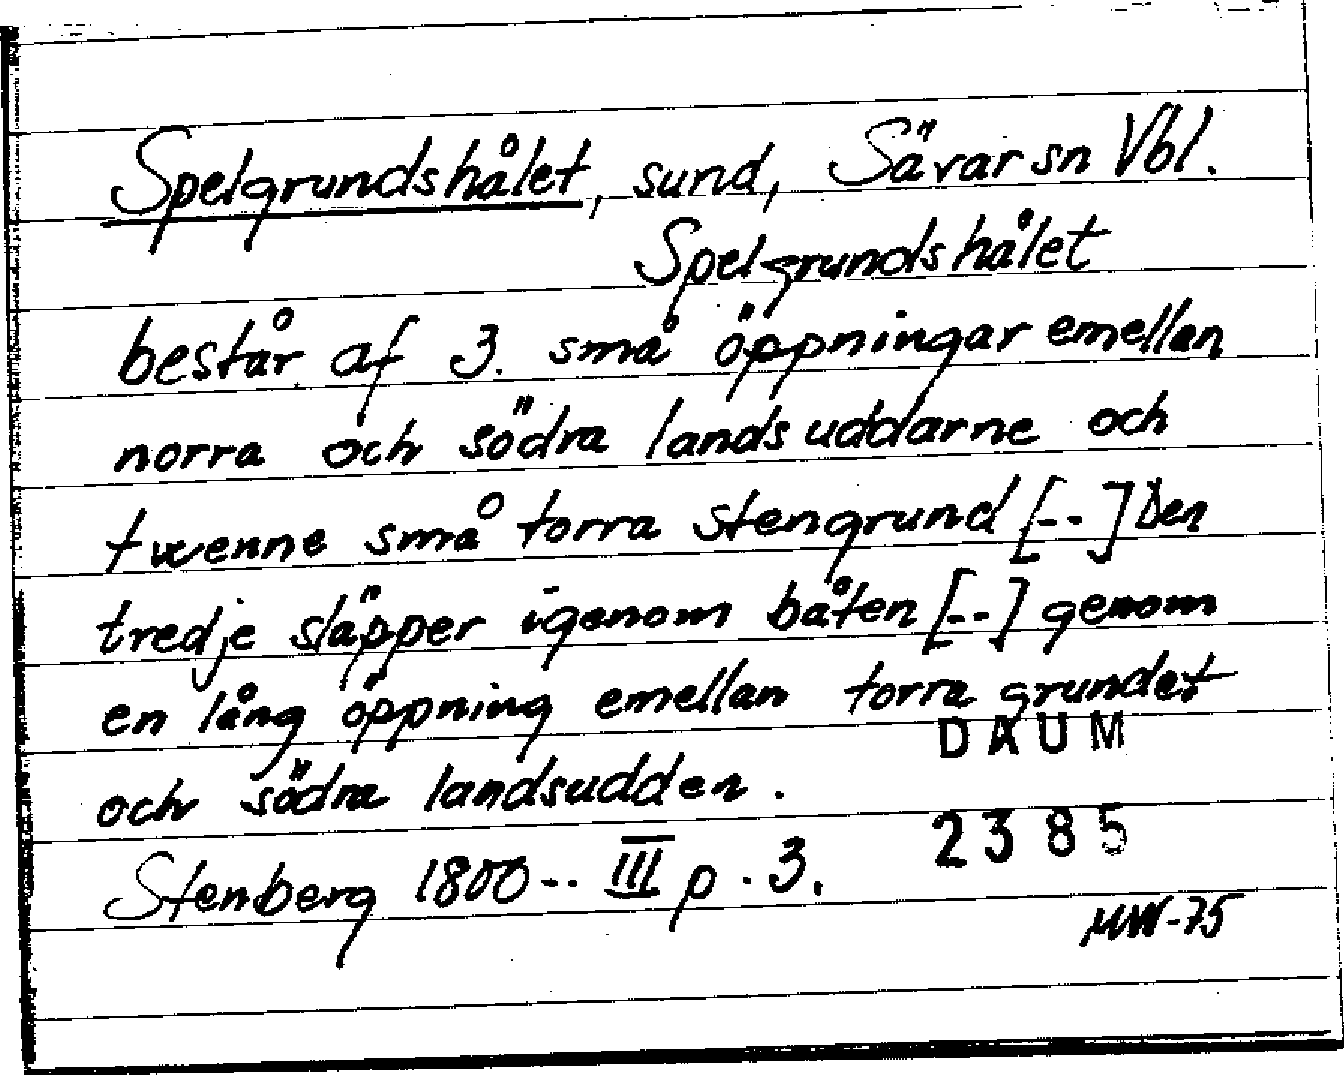 Spelgrundshålet, sund, Sävar sn Vbl.
Spelgrundshålet
består af 3. små öppningar emellan
norra och södra landsuddarne och
twenne små torra stengrund [--] Den
tredje släpper igenom båten [--] genom
en lång öppning emellan torra grundet
och södra landsudden.
DAUM
2385
Stenberg 1800-- III p. 3.
MW-75